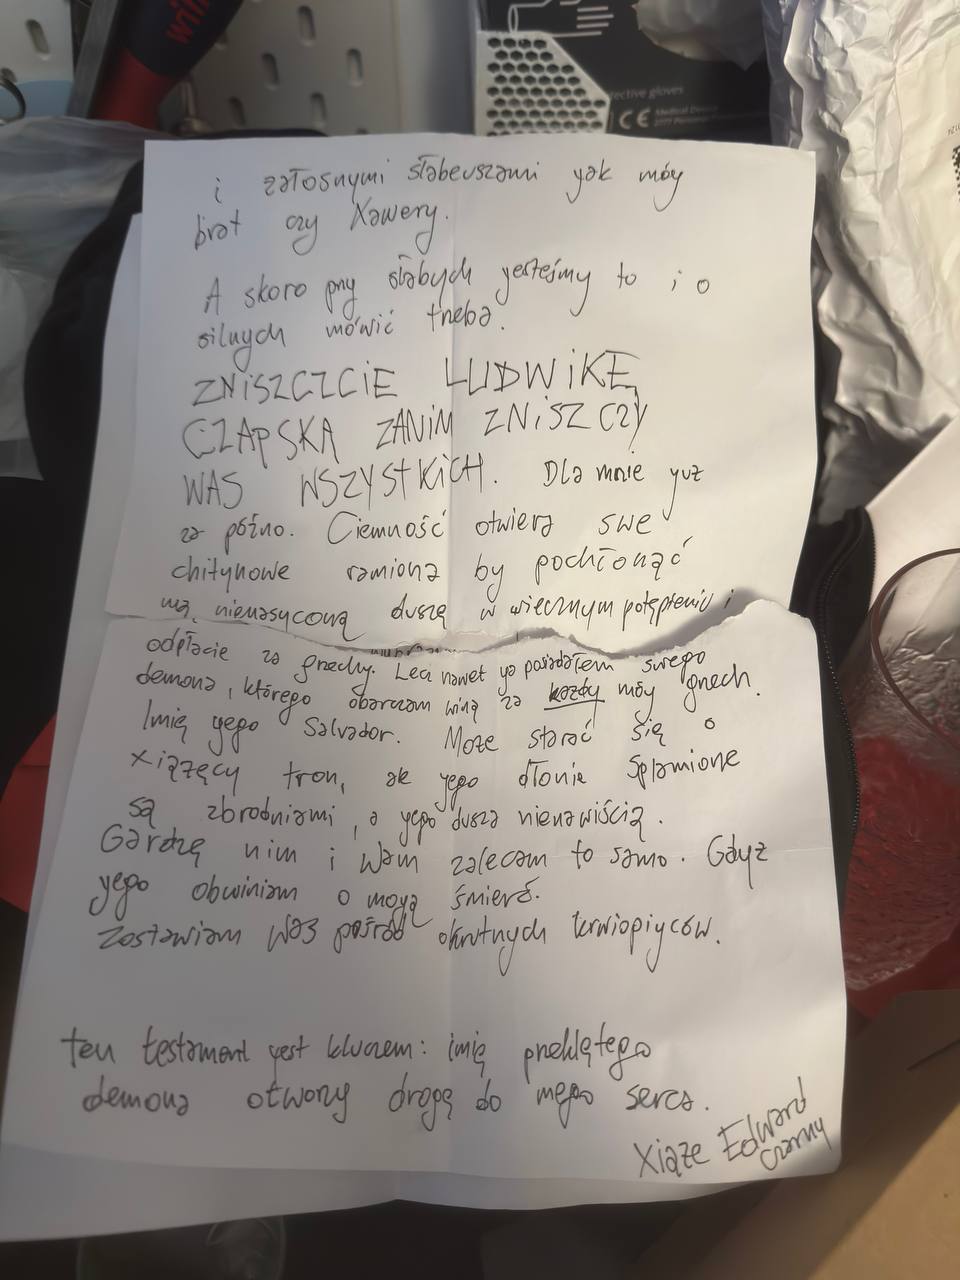 wil
ective gloves
CE Medical Device
i załosnymi słabeuszami yak móy
brat czy Xawery.
A skoro pzy słabych yesteśmy to i o
silnych mówić tzeba.
ZNiSZCZCiE LUDWiKĘ
CZAPSKĄ ZANiM ZNiSZCZY
WAS WSZYSTKiCH. Dla mnie yuż
za późno. Ciemność otwiera swe
chitynowe ramiona by pochłonąć
mą nienasyconą duszę w wiecznym potępieniu i
odpłacie za gzechy. Lecz nawet ya posiadałem swego
demona, którego obarczam winą za każdy móy gzech.
Imię yego Salvador. Może starać się o
xiązęcy tron, ale yego dłonie splamione
są zbrodniami, a yego dusza nienawiścią.
Gardzę nim i Wam zalecam to samo. Gdyż
yego obwiniam o moyą śmierć.
Zostawiam Was pośród okrutnych krwiopiyców.
ten testament yest kluczem: imię pzeklętego
demona otwozy drogę do mego serca.
Xiąże Edward
Czarny